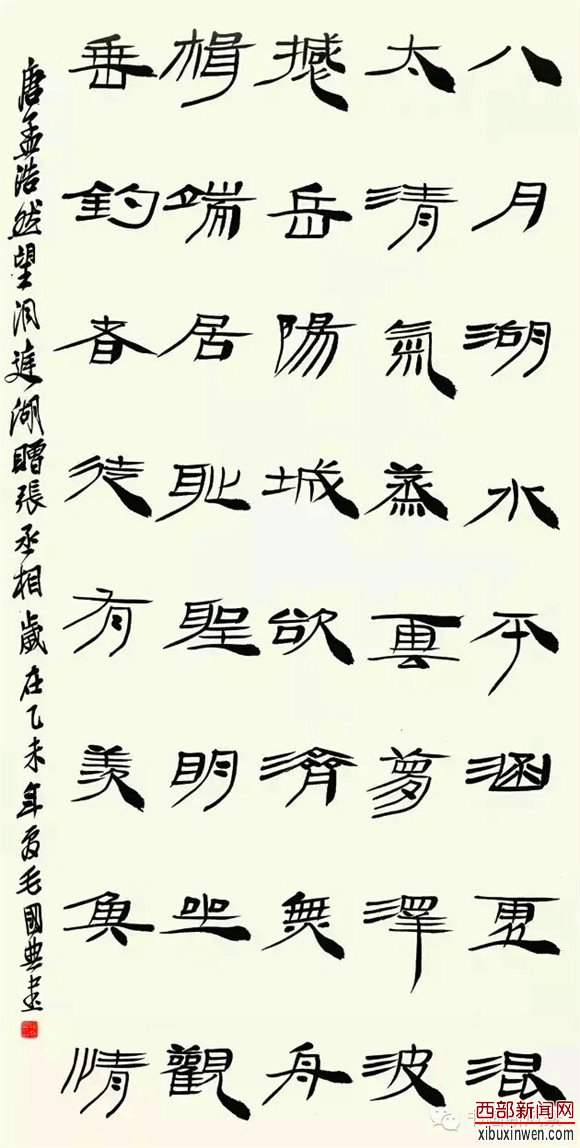 八月湖水平涵虚混
太清氣蒸雲夢澤波
撼岳陽城欲濟無舟
楫端居耻聖明坐觀
垂釣者徒有羡魚情
唐孟浩然望洞庭湖贈張丞相歲在乙未年夏毛國典書
西部新闻网
xibuxinwen.com